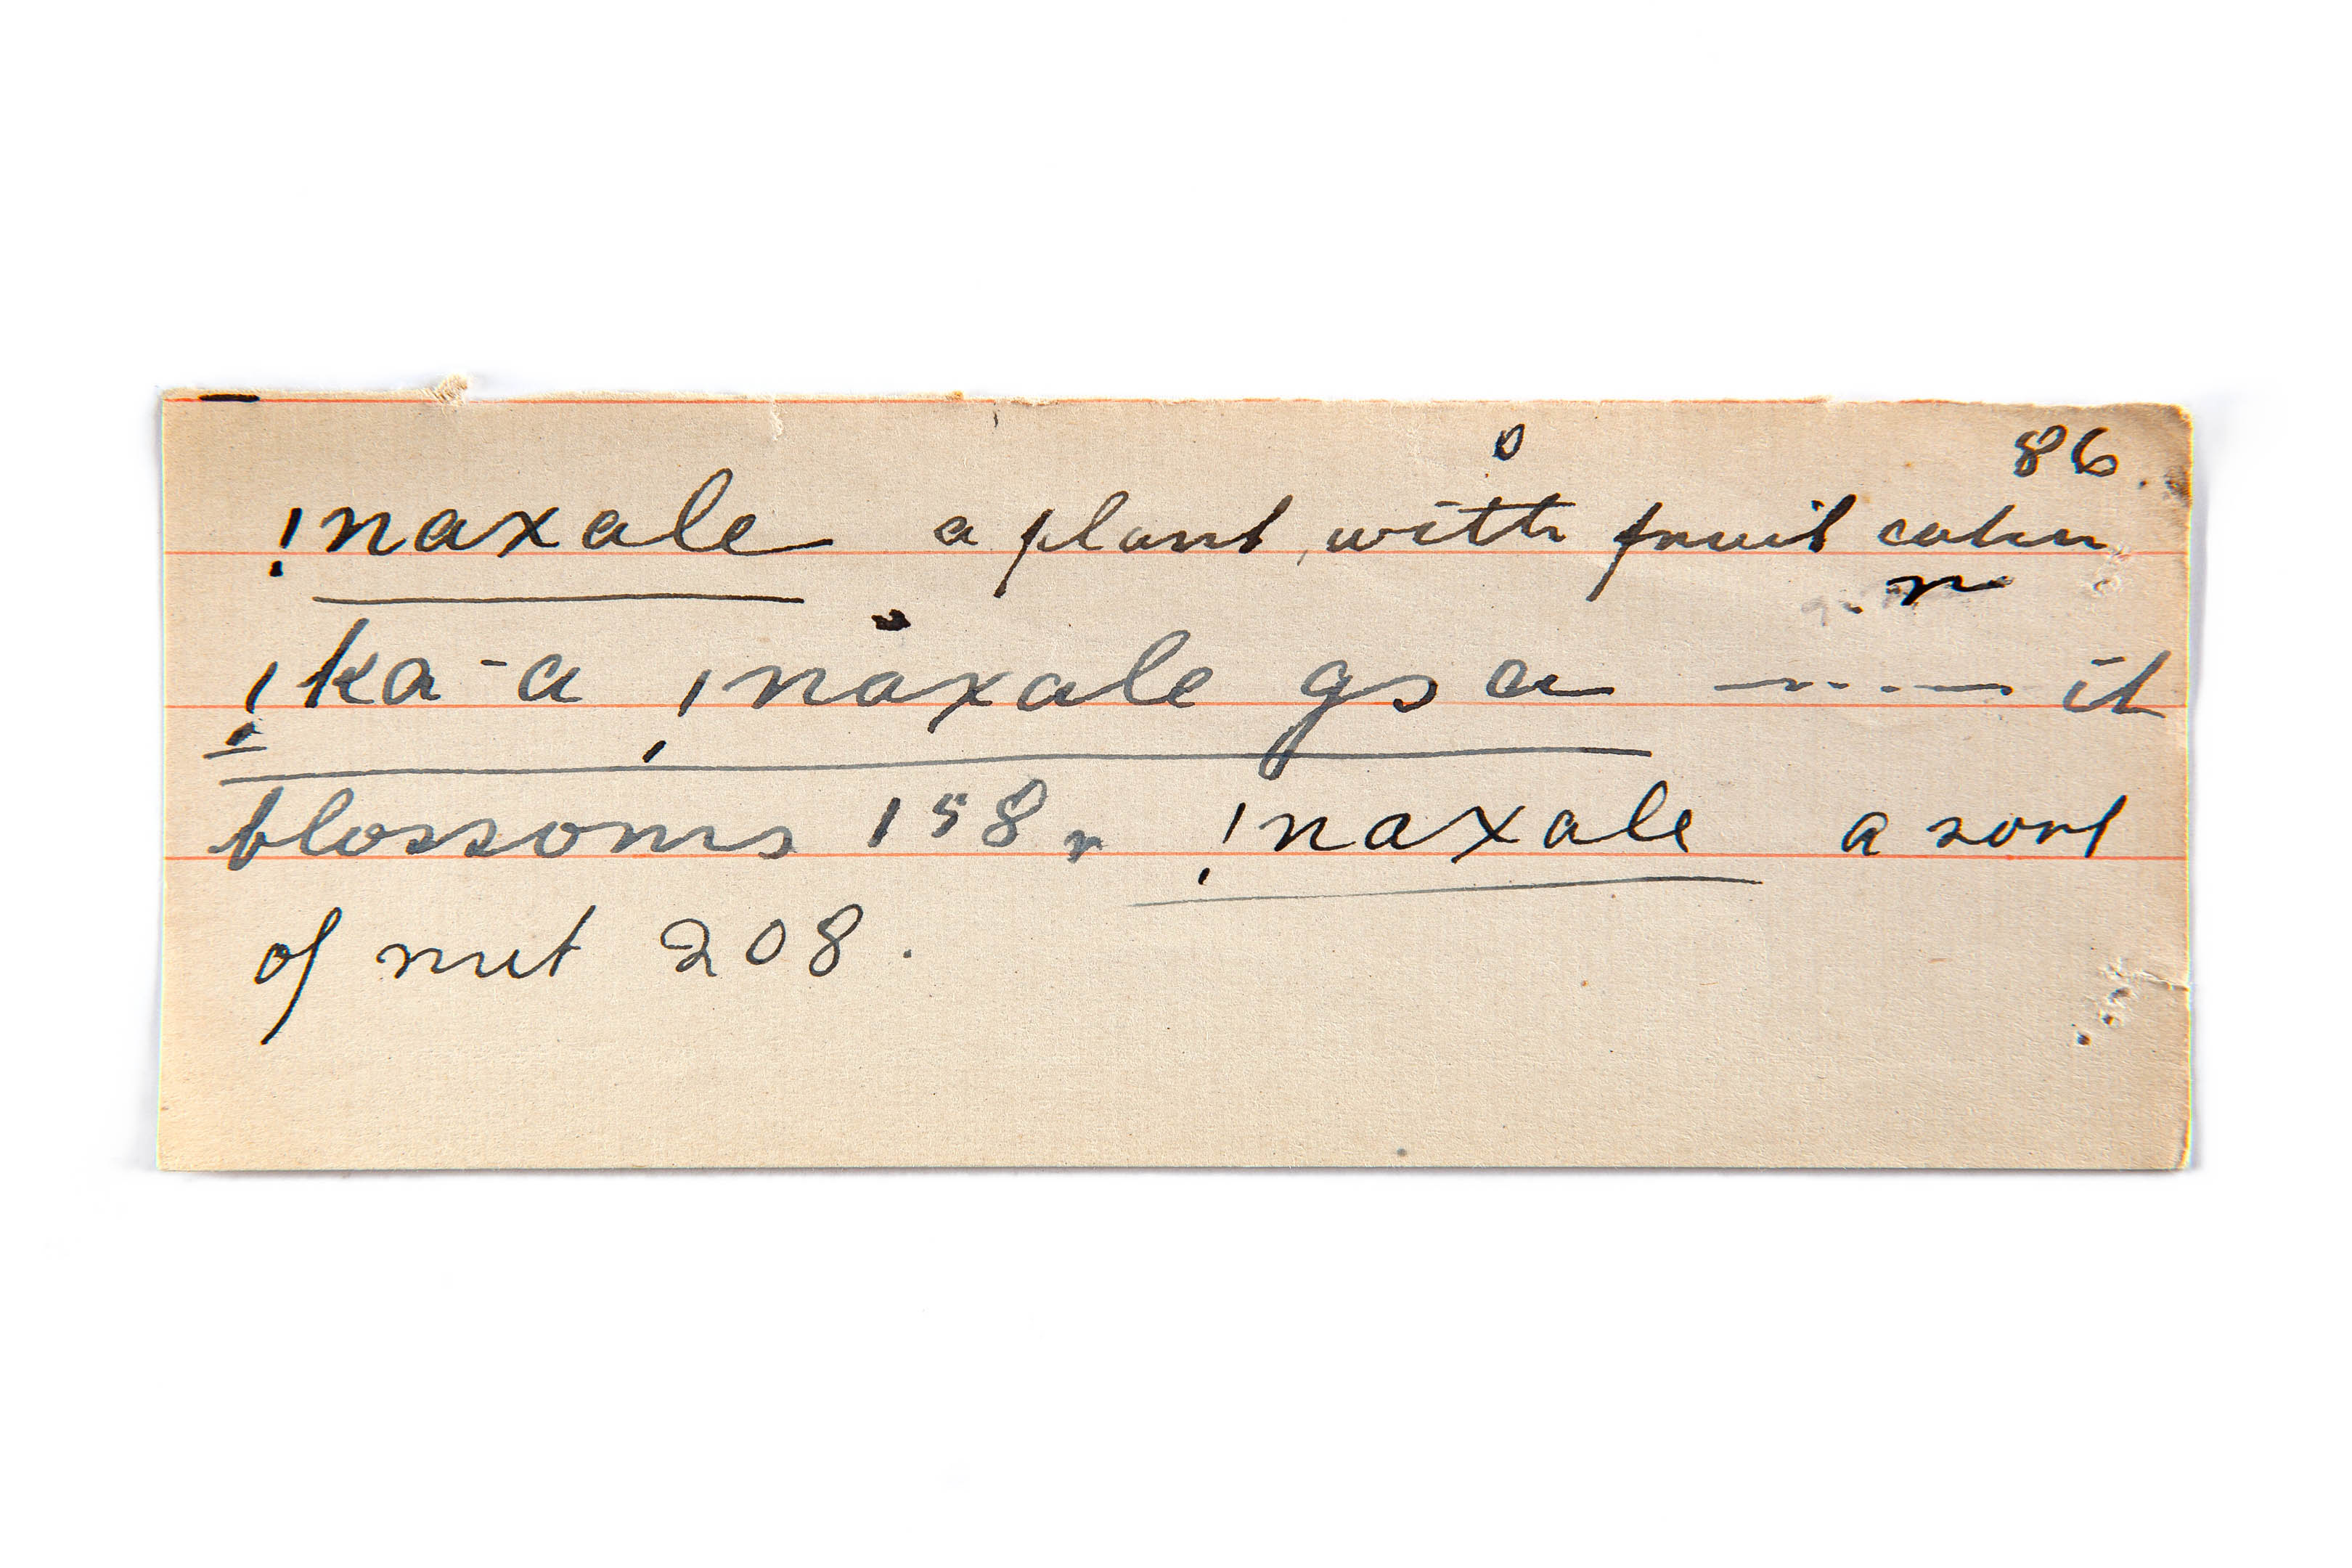 86.
!naxale a plant with fruit eaten
!ka-a !naxale gsa ------ it
blossoms 158r !naxale a sort
of nut 208.